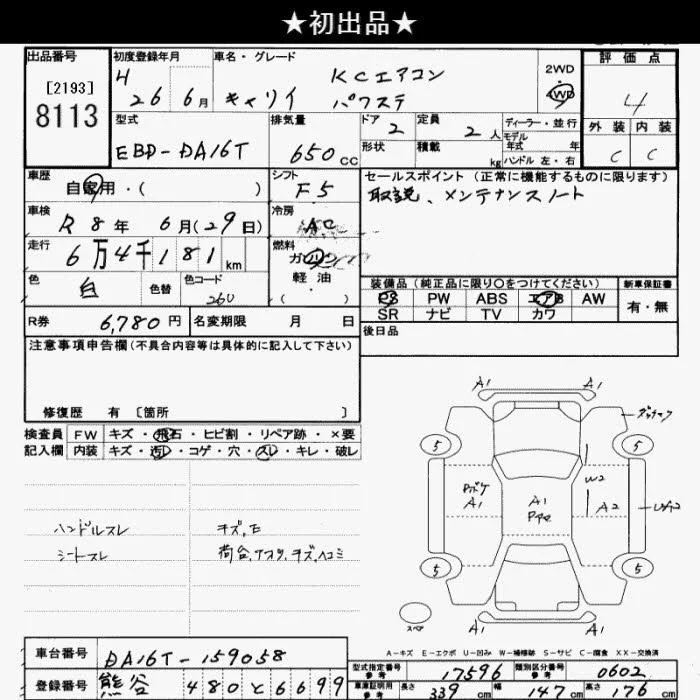 ★初出品★
出品番号
[2193]
8113
初度登録年月
H 26 6月
車名・グレード
KCエアコン
キャリイ パワステ
2WD
4WD
評価点
4
外装 内装
C C
型式
EBD-DA16T
排気量
650 CC
ドア 2
定員 2人
形状
積載 kg
ディーラー・並行
モデル
年式 年
ハンドル 左・右
車歴
自家用・( )
シフト
F5
セールスポイント(正常に機能するものに限ります)
取説、メンテナンスノート
車検
R 8年 6月(29日)
冷房
AC
走行
6万4千181km
燃料
ガソリン
軽・油
( )
色
白
色替
色コード
26U
装備品(純正品に限り○をつけてください)
PS PW ABS エアB AW
SR ナビ TV カワ
新車保証書
有・無
R券 6,780円
名変期限 月 日
後日品
注意事項申告欄(不具合内容等は具体的に記入して下さい)
修復歴 有〔箇所 〕
検査員 FW キズ・飛石・ヒビ割・リペア跡・×要
記入欄 内装 キズ・汚レ・コゲ・穴・スレ・キレ・破レ
ハンドルスレ
シートスレ
キズ,E
荷台,キズ,ヘコミ
A1 A1
5 5
W2
Pボケ
A1
A1
A2
5 5
スペア
A1 A1
A-キズ E-エクボ U-凹み W-補修跡 S-サビ C-腐食 XX-交換済
車台番号 DA16T-159058
登録番号 熊谷 480 と 6699
型式指定番号
参考
17596
類別区分番号
参考
0602
車車証明用
参考
長さ 339cm 幅 147cm 高さ 176cm